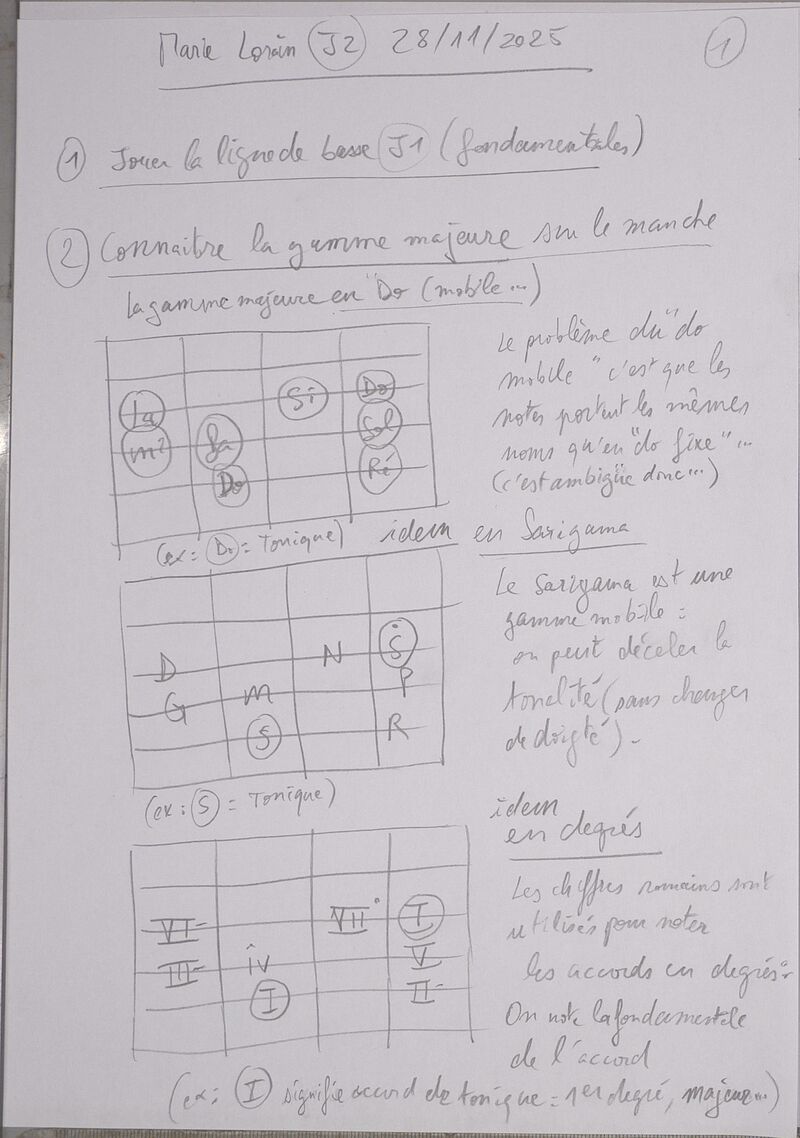 Marie Loràn J2 28/11/2025 1
1 Jouer la ligne de basse J1 (fondamentales)
2 Connaitre la gamme majeure sur le manche
La gamme majeure en "Do (mobile...)
Le problème du "do
mobile" c'est que les
notes portent les mêmes
noms qu'en "do fixe"...
(c'est ambigüe donc...)
Si Do
La Sol
mi Fa
Do Ré
(ex: Do = Tonique)
idem en Sarigama
Le Sarigama est une
gamme mobile:
on peut déceler la
tonalité (sans changer
de doigté).
D N Ṡ
G m P
S R
(ex: S = Tonique)
idem
en degrés
Les chiffres romains sont
utilisés pour noter
les accords en degrés.
On note la fondamentale
de l'accord
VI- VII° I
III- iv V
I II-
(ex: I signifie accord de tonique = 1er degré, majeur...)